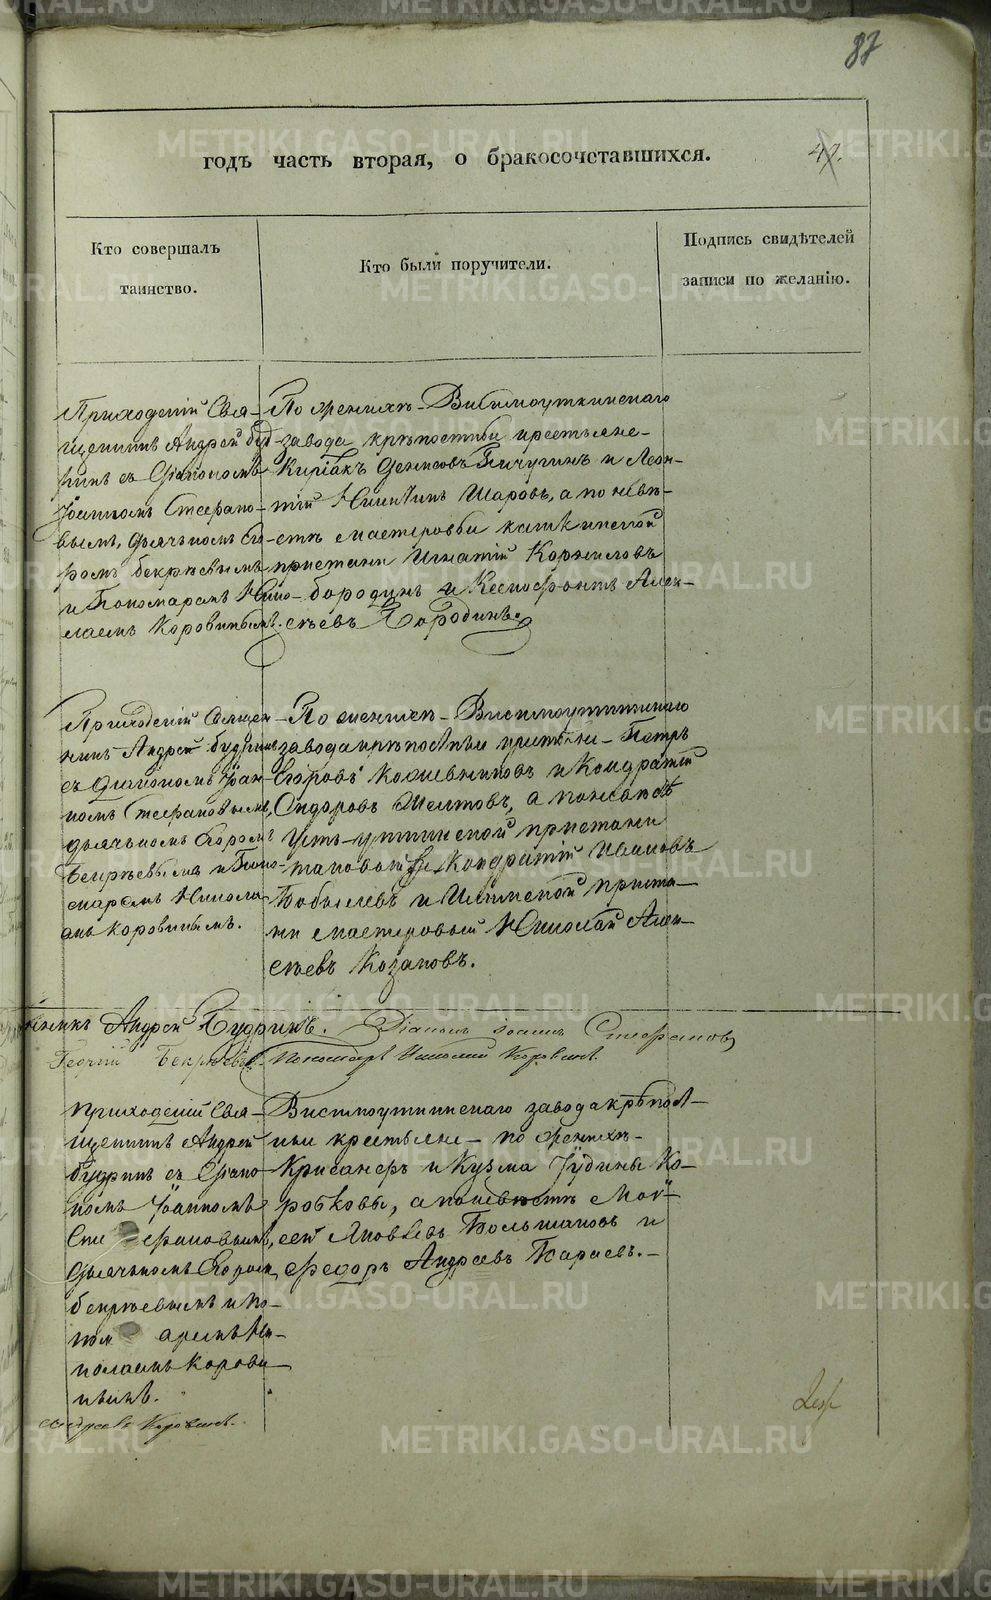 87
годъ часть вторая, о бракосочставшихся.
42.
Кто совершалъ
таинство.
Кто были поручители.
Подпись свидѣтелей
записи по желанію.
Приходскій Свя-
щенникъ Андрей Буд-
ринъ съ Діакономъ
Іоанномъ Стефано-
вымъ, дьячькомъ Его-
ромъ бекрѣевымъ
и Пономаремъ Нико-
лаемъ Коровинымъ.
По женихѣ - Висимоуткинскаго
завода крѣпостныи крестьяне-
Киріакъ Денисовъ Пичугинъ и Леон-
тій Никитинъ Шаровъ, а по невѣ-
стѣ мастеровыи
пристани Игнатій Корниловъ
бородинъ и Ксенофонтъ Алек-
сѣевъ Бородинъ.
Приходскій Священ-
никъ Андрей будринъ
съ Діакономъ Іоан-
номъ Стефановымъ,
дьячькомъ Егоромъ
Бекрѣевымъ и Поно-
маремъ Никола-
емъ Коровинымъ.
По женихѣ - Висимоуткинскаго
завода крѣпостныи крестьяне - Петръ
Егоровъ Кожевниковъ и Кондратій
Сидоровъ Желтовъ, а по невѣстѣ
Усть-уткинской пристани
Кондратій Ивановъ
Бобылевъ и Илимской приста-
ни мастеровый Николай Алек-
сѣевъ Козаковъ.
Андрей Будринъ. Діаконъ Іоаннъ Стефановъ
Георгій Бекрѣевъ. Пономарь Николай Коровинъ.
Приходскій Свя-
щенникъ Андрей
будринъ съ Діако-
номъ Іоанномъ
Стефановымъ,
дьячькомъ Егоромъ
бекрѣевымъ и по-
номаремъ Ни-
колаемъ Корови-
нымъ.
Висимоуткинскаго завода крѣпост-
ныи крестьяне - по женихѣ-
Крисанфъ и Кузма Іудины Ко-
робковы, а по невѣстѣ Мои-
сей Яковлевъ Большаковъ и
Федоръ Андреевъ Бараевъ.-
Коровинъ.
METRIKI.GASO-URAL.RU